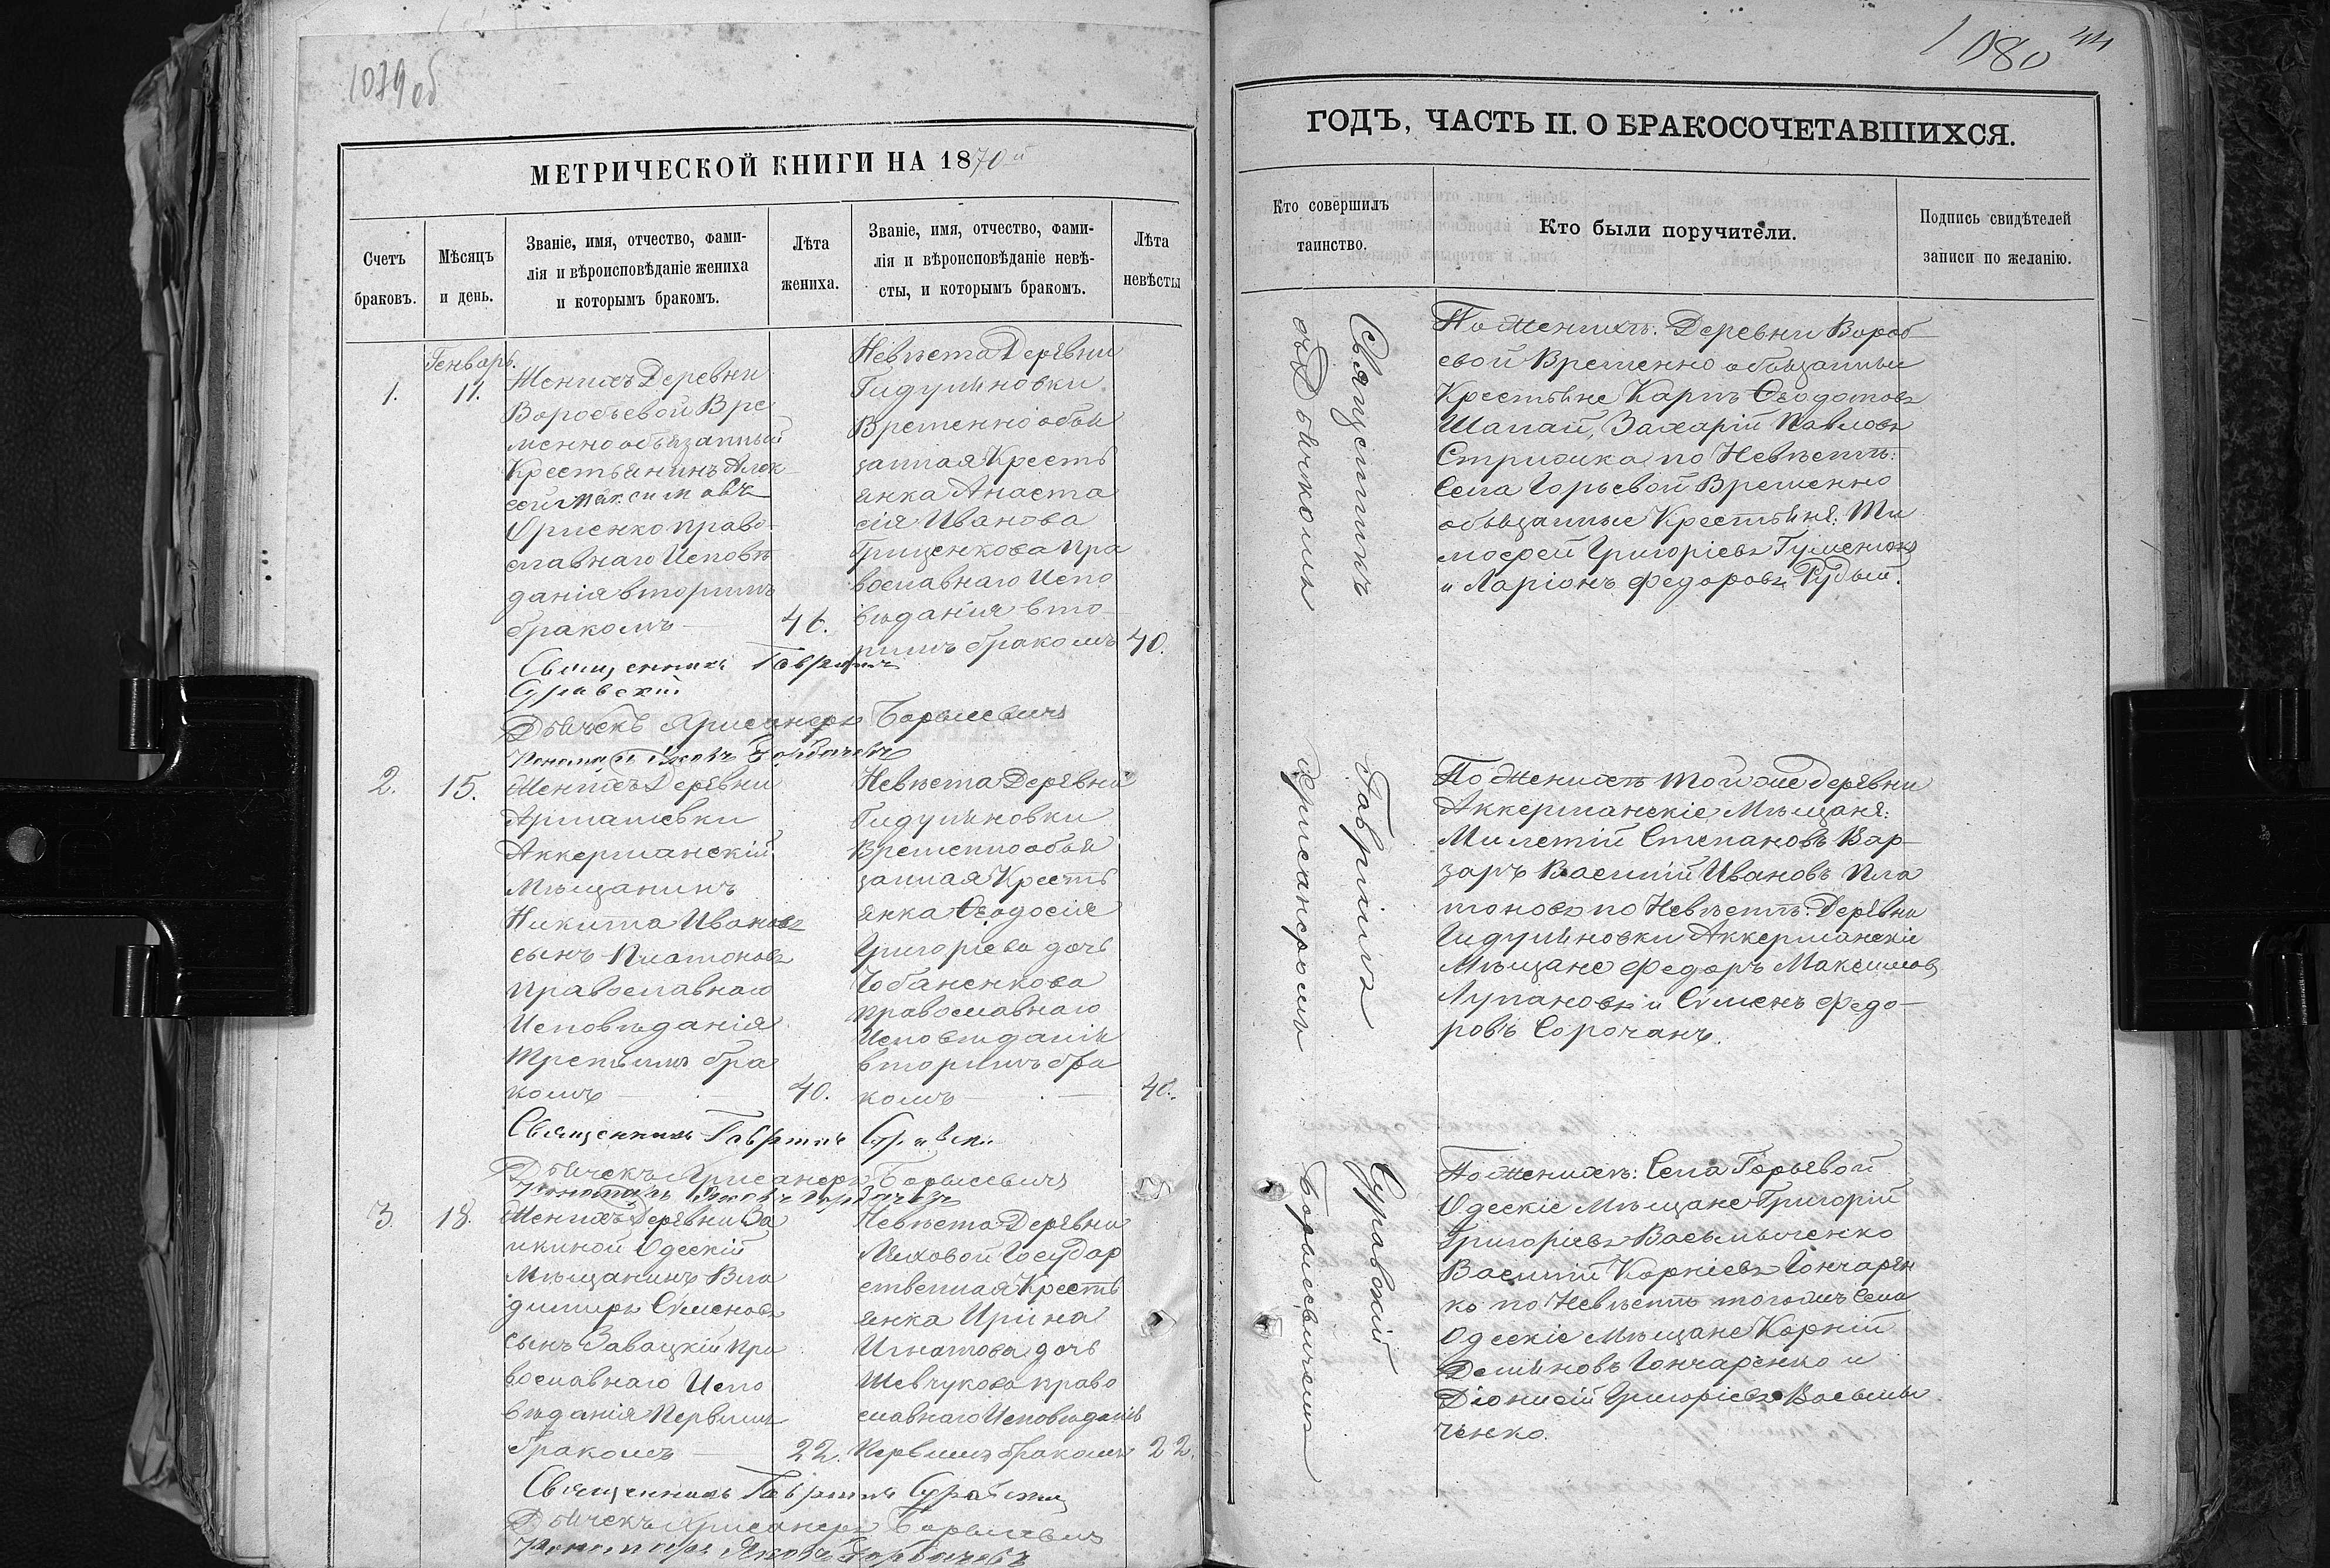 1079 об
МЕТРИЧЕСКОЙ КНИГИ НА 1870й
Счетъ
браковъ.
Мѣсяцъ
и день.
Званіе, имя, отчество, фами-
лія и вѣроисповѣданіе жениха
и которымъ бракомъ.
Лѣта
жениха.
Званіе, имя, отчество, фами-
лія и вѣроисповѣданіе невѣ-
сты, и которымъ бракомъ.
Лѣта
невѣсты
1.
Генварь.
11.
Женихъ Деревни
Воробьевой Вре
менно обязанный
Крестьянинъ Алек
сей Максимовъ
право
славнаго Исповѣ
данія вторымъ
бракомъ
Невѣста Деревни
Гидуляновки
Временно обя
занная Кресть
янка Анаста
сія Иванова
Гриценкова Пра
вославнаго Испо
вѣданія вто
рымъ бракомъ
40.
Священникъ Гавріилъ
Суравскій
Дьячекъ Хрисанфъ Борысевичъ
Пономарь Яковъ Горбачевъ
2.
15.
Женихъ Деревни
Армашевки
Аккерманскій
Мѣщанинъ
Никита Ивановъ
сынъ Платоновъ
Православнаго
Исповѣданія
Третьимъ бра
комъ
40.
Невѣста Деревни
Гидуляновки
Временно обя
занная Кресть
янка Ѳеодосія
Григоріева дочь
Чобаненкова
православнаго
Исповѣданія
вторымъ бра
комъ
40.
Священникъ Гавріилъ Суравскій
Дьячекъ Хрисанфъ Борысевичъ
Пономарь Яковъ Горбачевъ
3.
18.
Женихъ Деревни За
икиной Одескій
Мѣщанинъ Вла
димиръ Сименовъ
сынъ Завацкій Пра
вославнаго Испо
вѣданія Первымъ
бракомъ
22.
Невѣста Деревни
Ляховой Государ
ственная Кресть
янка Ирина
Игнатова дочь
Шевчукова право
славнаго Исповѣданія
Первымъ бракомъ
22.
Священникъ Гавріилъ Суравскій
Дьячекъ Хрисанфъ Борысевичъ
Пономарь Яковъ Горбачевъ
1080
44
ГОДЪ, ЧАСТЬ II. О БРАКОСОЧЕТАВШИХСЯ.
Кто совершилъ
таинство.
Кто были поручители.
Подпись свидѣтелей
записи по желанію.
Священникъ Гавріилъ Суравскій
съ Дьячкомъ Хрисанфомъ Борысевичемъ
По Женихѣ: Деревни Вороб
евой Временно обязанные
Крестьяне Карпъ Ѳеодотовъ
Шапай, Захарій Павловъ
Стрижка по Невѣстѣ:
Села Горьевой Временно
обязанные Крестьяне: Ти
мофей Григоріевъ Гуменюкъ
и Ларіонъ Федоровъ Рудый.
По Женихѣ той же деревни
Аккерманскіе Мѣщане:
Милетій Степановъ Вар-
заръ Василій Ивановъ Пла
тоновъ по Невѣстѣ: Деревни
Гидуляновки Аккерманскіе
Мѣщане Федоръ Максимовъ
Лупановъ и Сименъ Федо-
ровъ Сорочанъ.
По Женихѣ: Села Горьевой
Одескіе Мѣщане Григорій
Григоріевъ Васильченко
Василій Корніевъ Гончарен
ко по Невѣстѣ тогожъ Села
Одескіе Мѣщане Корній
Демяновъ Гончаренко и
Діонисій Григоріевъ Василь
ченко.